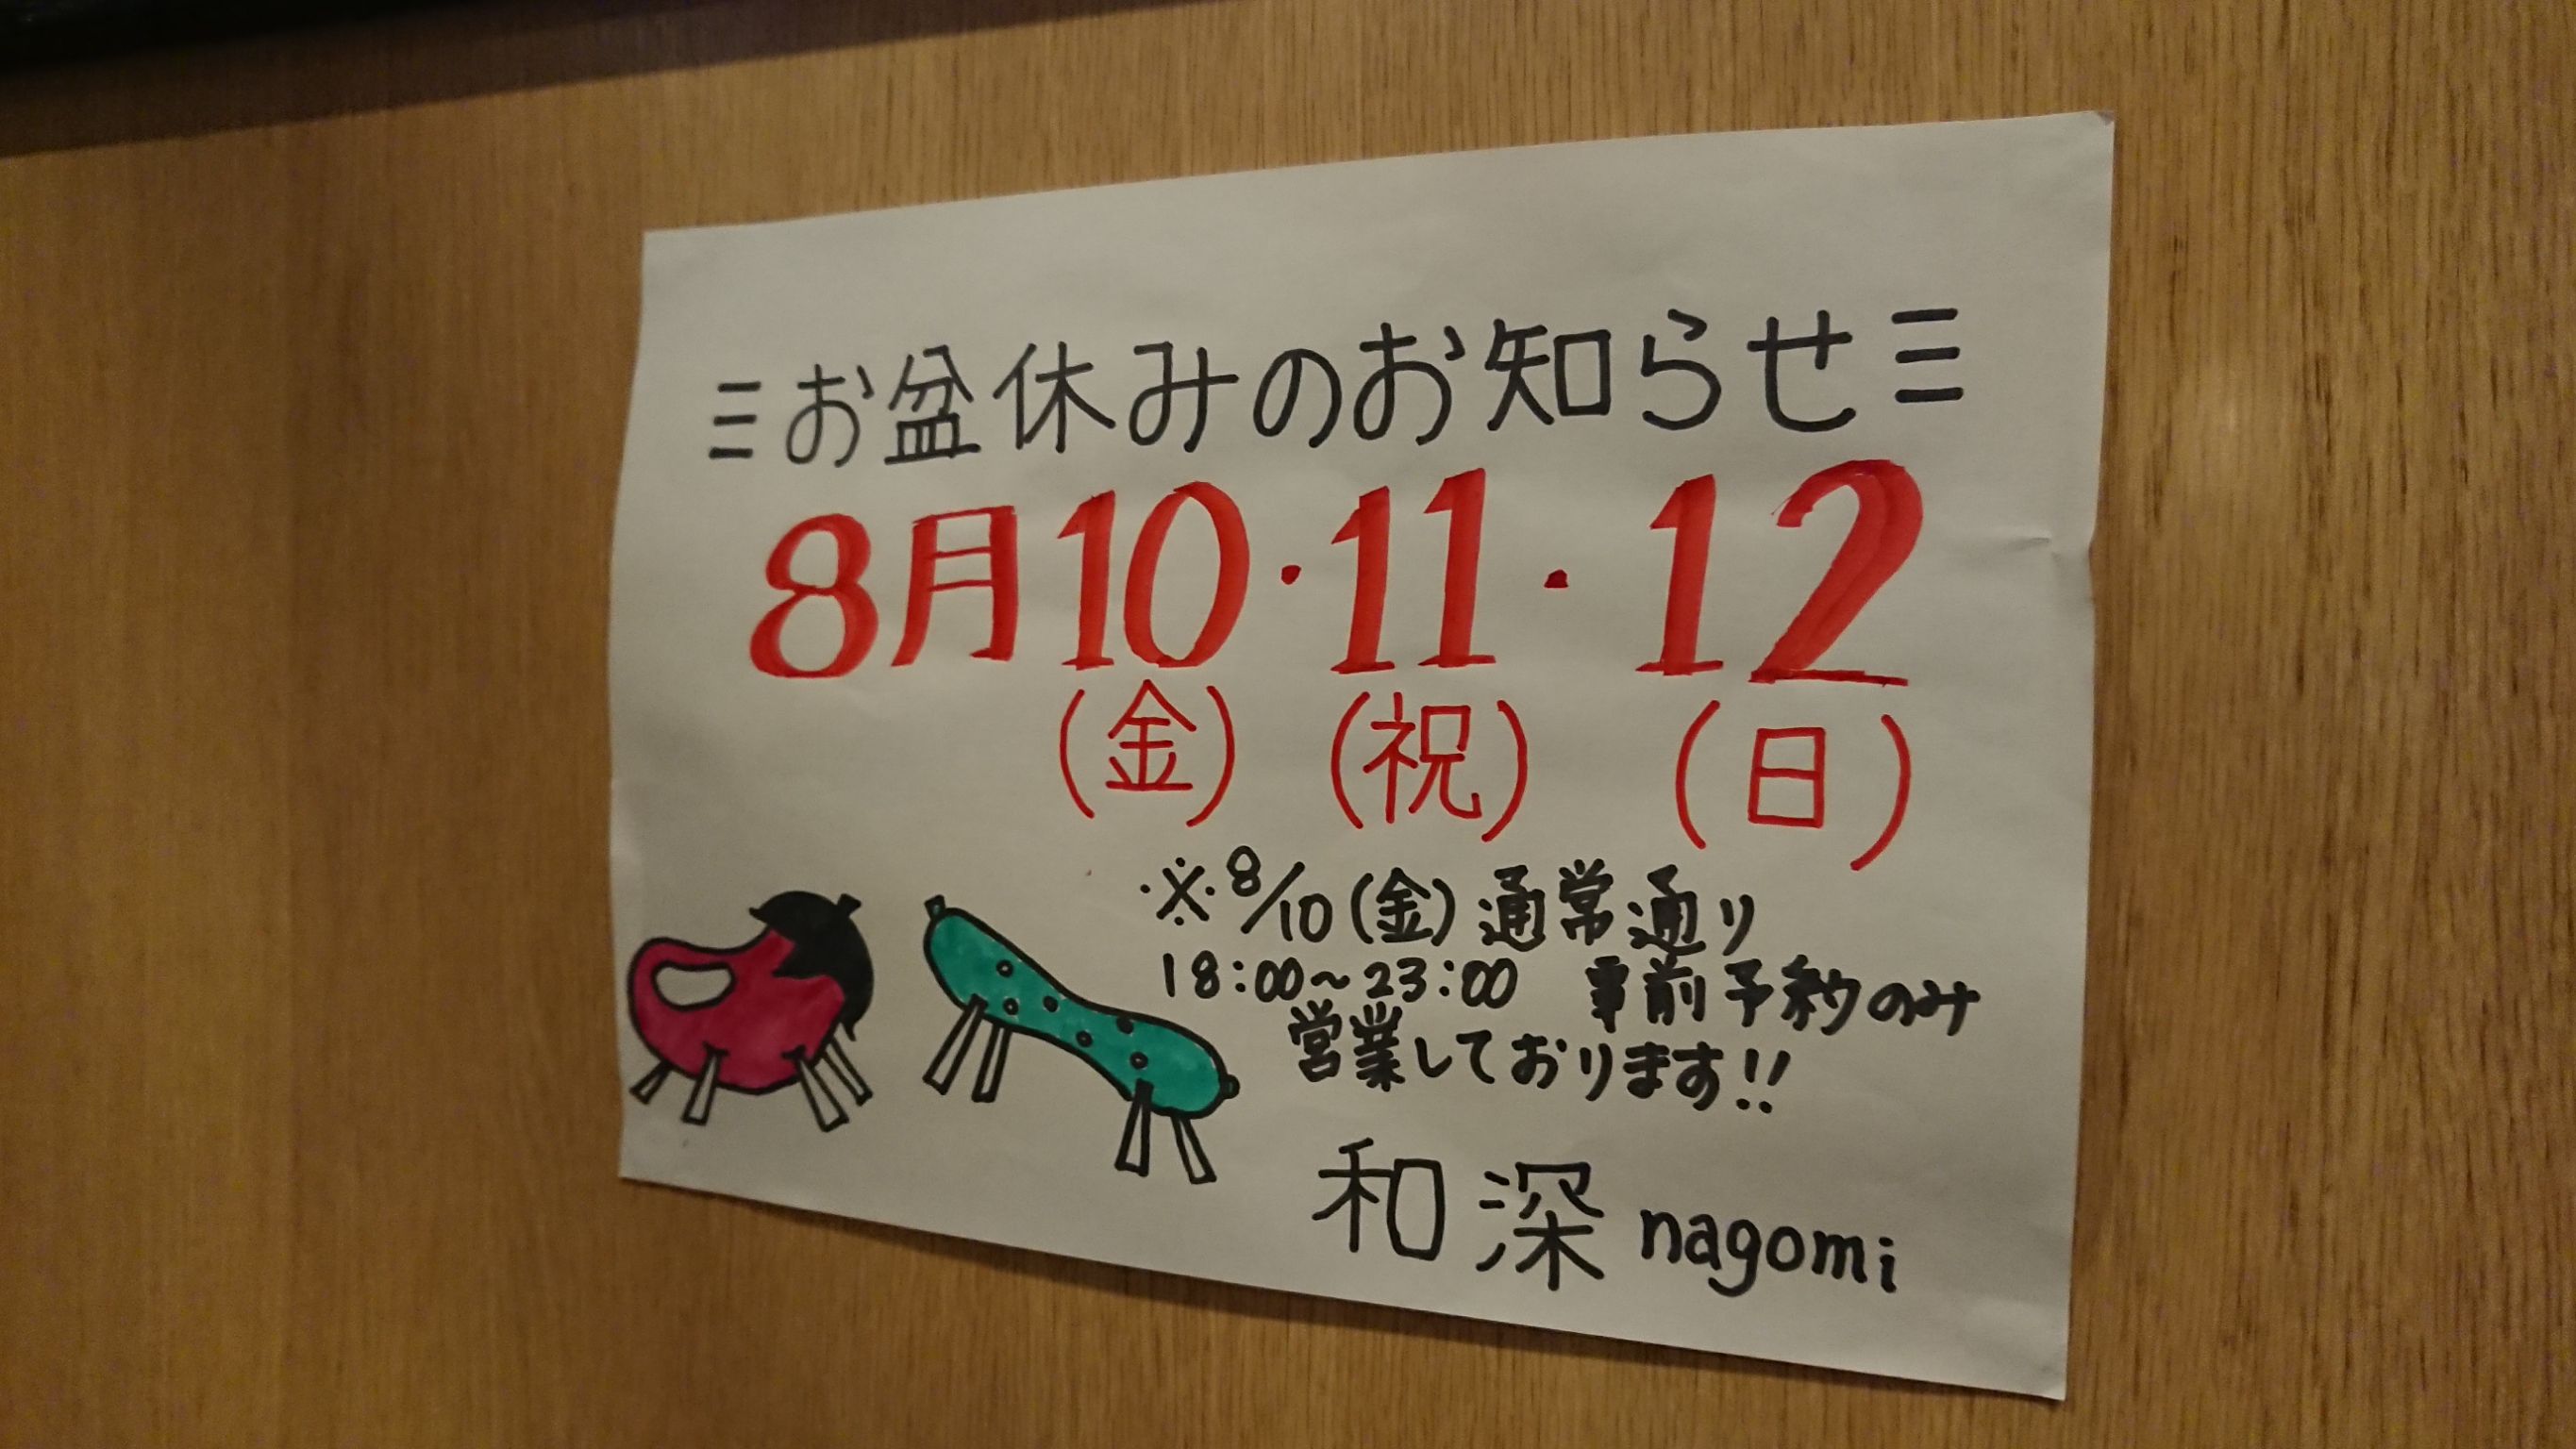 お盆休みのお知らせ
8月10・11・12
(金) (祝) (日)
※8/10(金)通常通り
18:00~23:00 事前予約のみ
営業しております!!
和深 nagomi